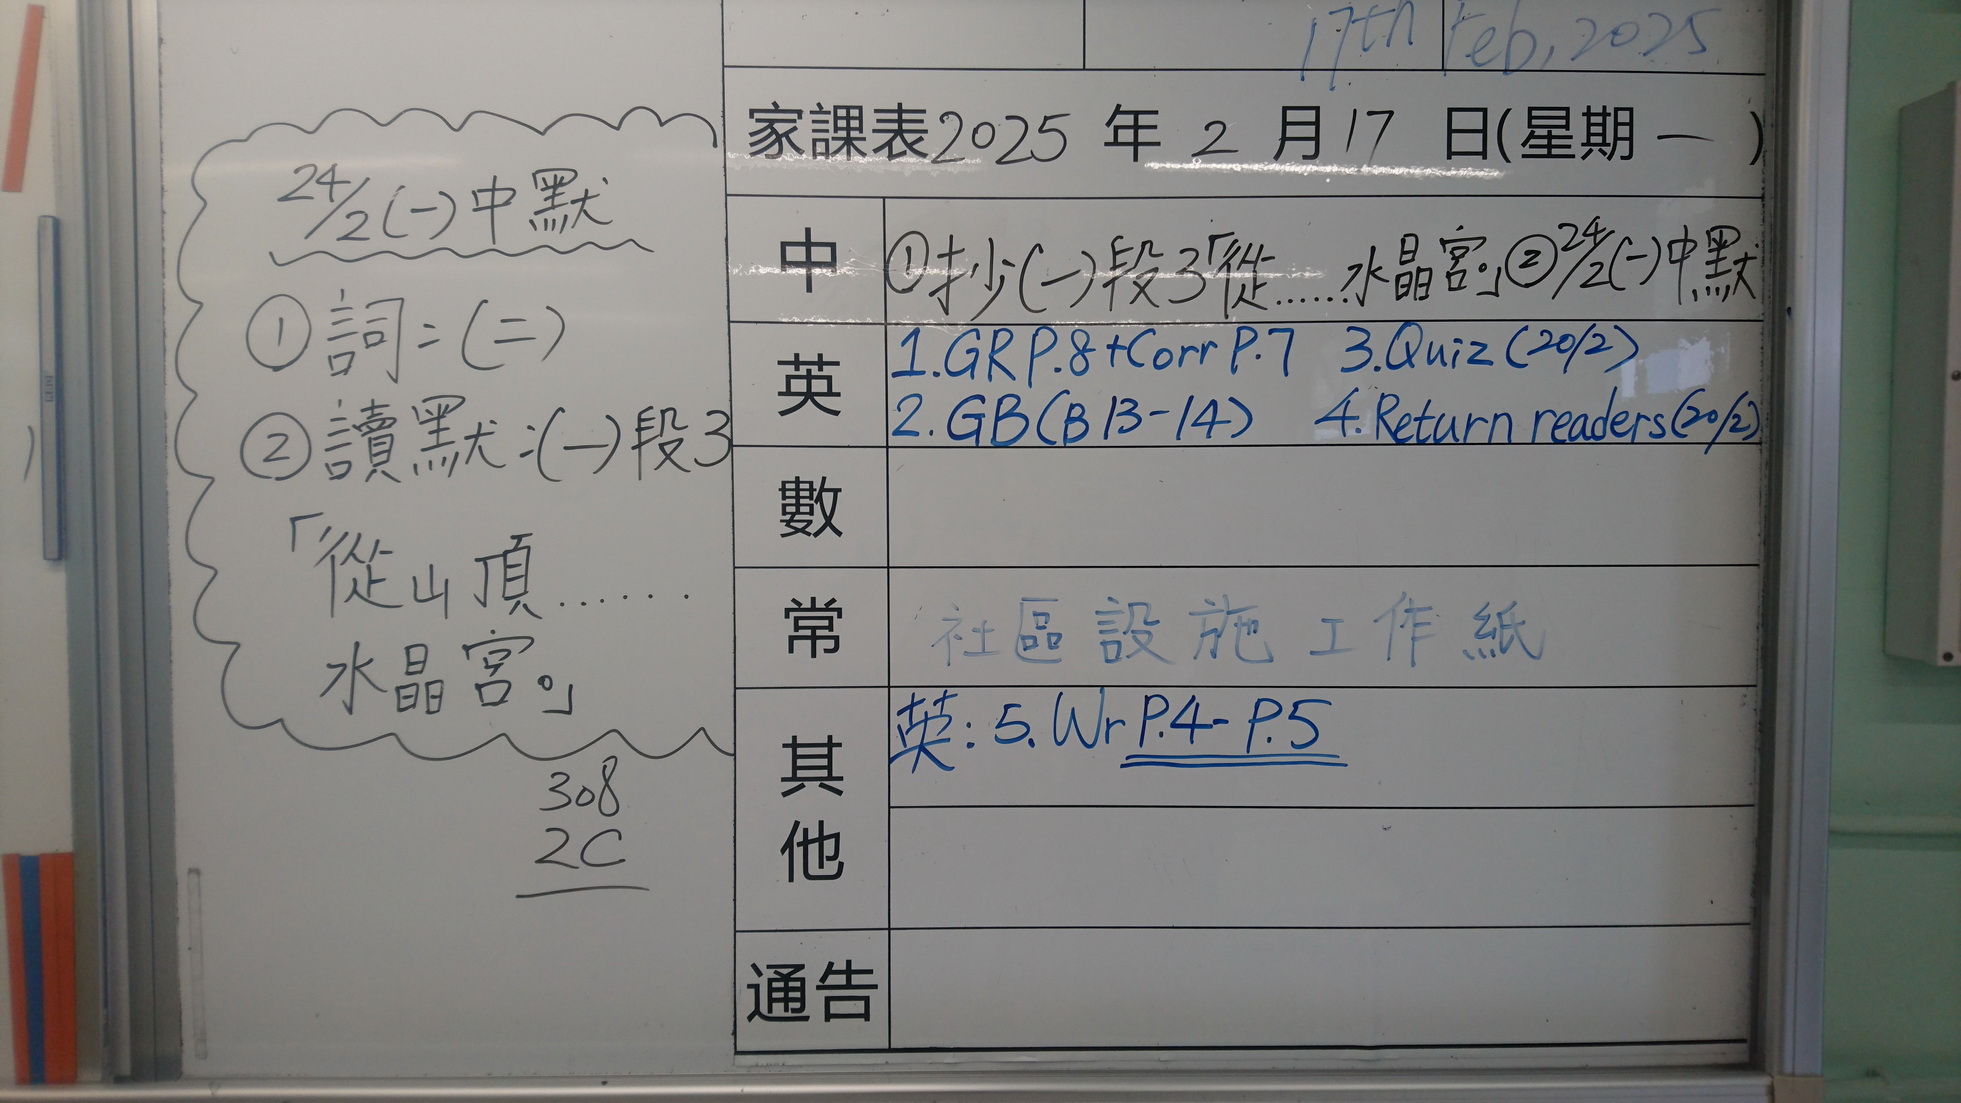 17th Feb, 2025
家課表2025年2月17日(星期一)
中 ①抄(一)段3「從......水晶宮。」②24/2(一)中默
英 1.GR P.8+Corr P.7 3.Quiz (20/2)
2.GB(B13-14) 4.Return readers(20/2)
數
常 社區設施工作紙
其他 英:5.Wr P.4-P.5
通告
24/2(一)中默
①詞:(二)
②讀默:(一)段3
「從山頂......
水晶宮。」
308
2C